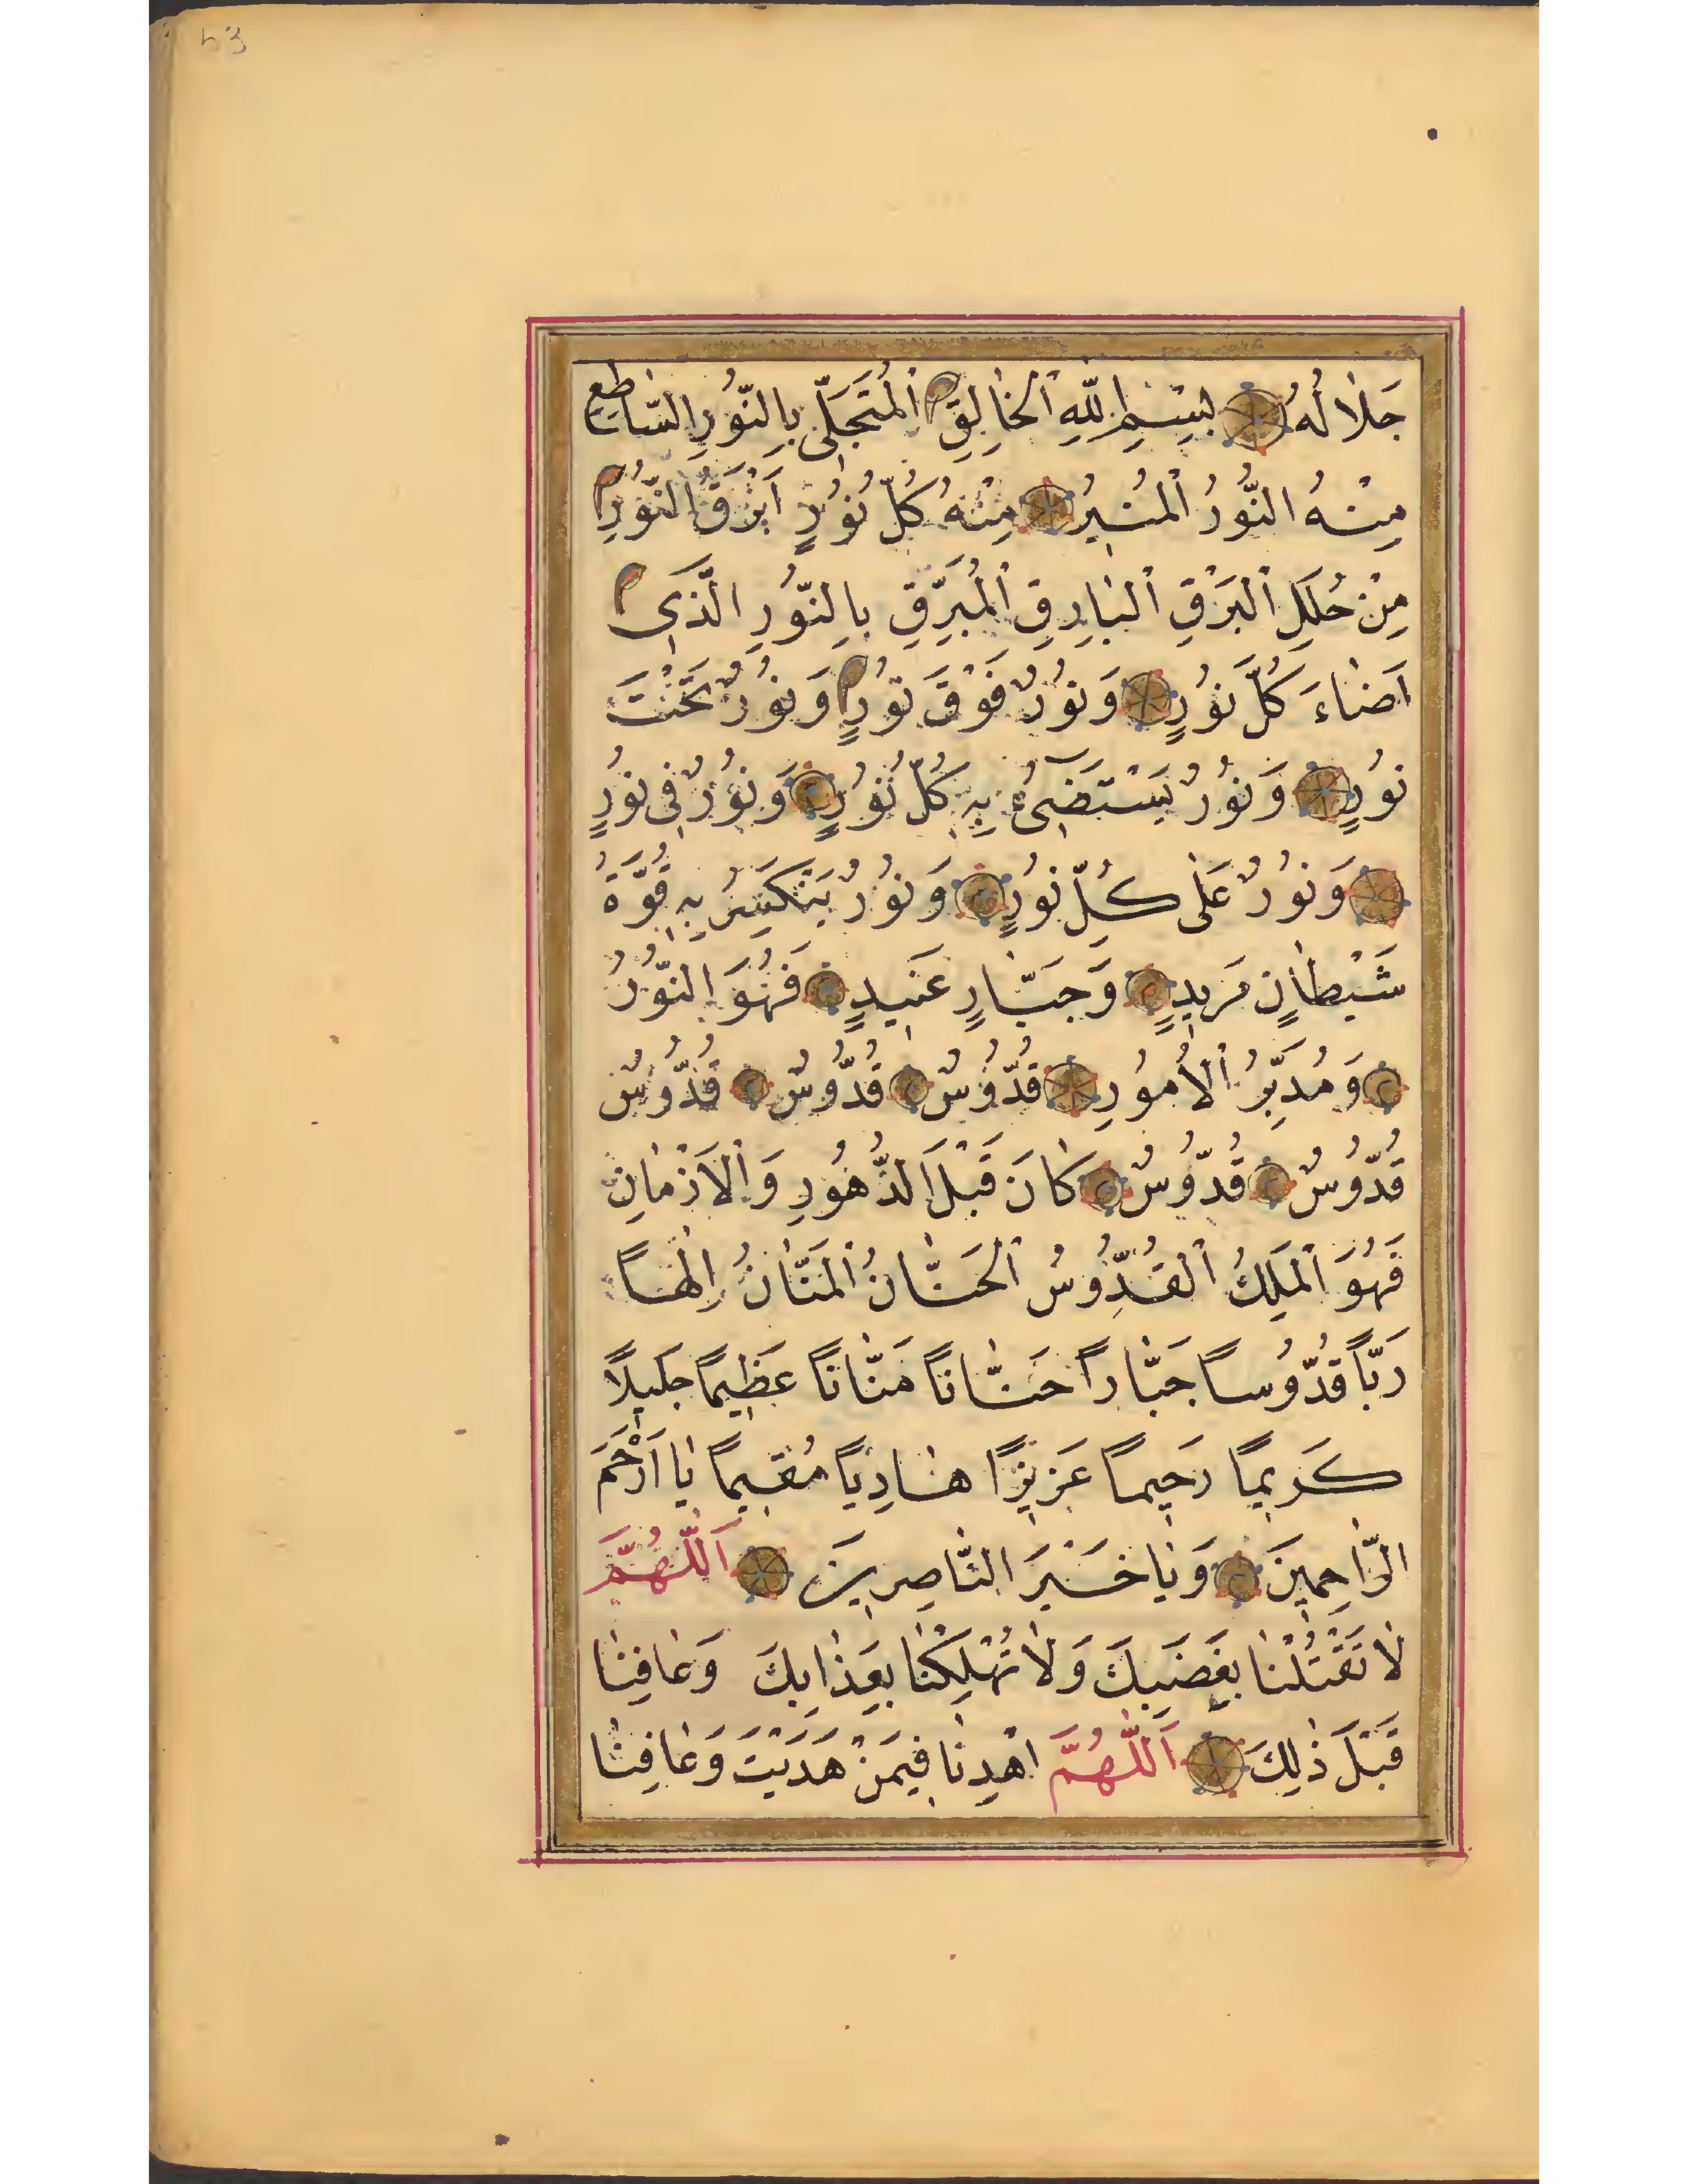 53
جَلَالُهُ بِسْمِ اللّٰهِ الْخَالِقِ الْمُتَجَلِّي بِالنُّورِ السَّاطِعِ
مِنْهُ النُّورُ الْمُنِيرُ مِنْهُ كُلُّ نُورٍ اَبْرَقَ النُّورِ
مِنْ حُلَلِ الْبَرْقِ الْبَارِقِ الْمُبَرِّقِ بِالنُّورِ الَّذِي
اَضَاءَ كُلَّ نُورٍ وَنُورٌ فَوْقَ نُورٍ وَنُورٌ تَحْتَ
نُورٍ وَنُورٌ يَسْتَضِيءُ بِهِ كُلُّ نُورٍ وَنُورٌ فِي نُورٍ
وَنُورٌ عَلَى كُلِّ نُورٍ وَنُورٌ يَنْكَسِرُ بِهِ قُوَّةُ
شَيْطَانٍ مَرِيدٍ وَجَبَّارٍ عَنِيدٍ فَهُوَ النُّورُ
وَمُدَبِّرُ الْاُمُورِ قُدُّوسٌ قُدُّوسٌ قُدُّوسٌ
قُدُّوسٌ قُدُّوسٌ كَانَ قَبْلَ الدُّهُورِ وَالْاَزْمَانِ
فَهُوَ الْمَلِكُ الْقُدُّوسُ الْحَنَّانُ الْمَنَّانُ اِلٰهًا
رَبًّا قُدُّوسًا جَبَّارًا حَنَّانًا مَنَّانًا عَظِيمًا جَلِيلًا
كَرِيمًا رَحِيمًا عَزِيزًا هَادِيًا مُقِيمًا يَا اَرْحَمَ
الرَّاحِمِينَ وَيَا خَيْرَ النَّاصِرِينَ اَللّٰهُمَّ
لَا تَقْتُلْنَا بِغَضَبِكَ وَلَا تُهْلِكْنَا بِعَذَابِكَ وَعَافِنَا
قَبْلَ ذٰلِكَ اَللّٰهُمَّ اهْدِنَا فِيمَنْ هَدَيْتَ وَعَافِنَا